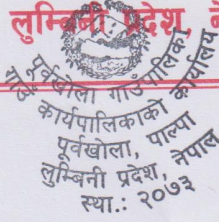 लुम्बिनी प्रदेश,
पूर्वखोला गाउँपालिका
गाउँ कार्यपालिकाको कार्यालय
पूर्वखोला, पाल्पा
लुम्बिनी प्रदेश, नेपाल
स्था.: २०७३